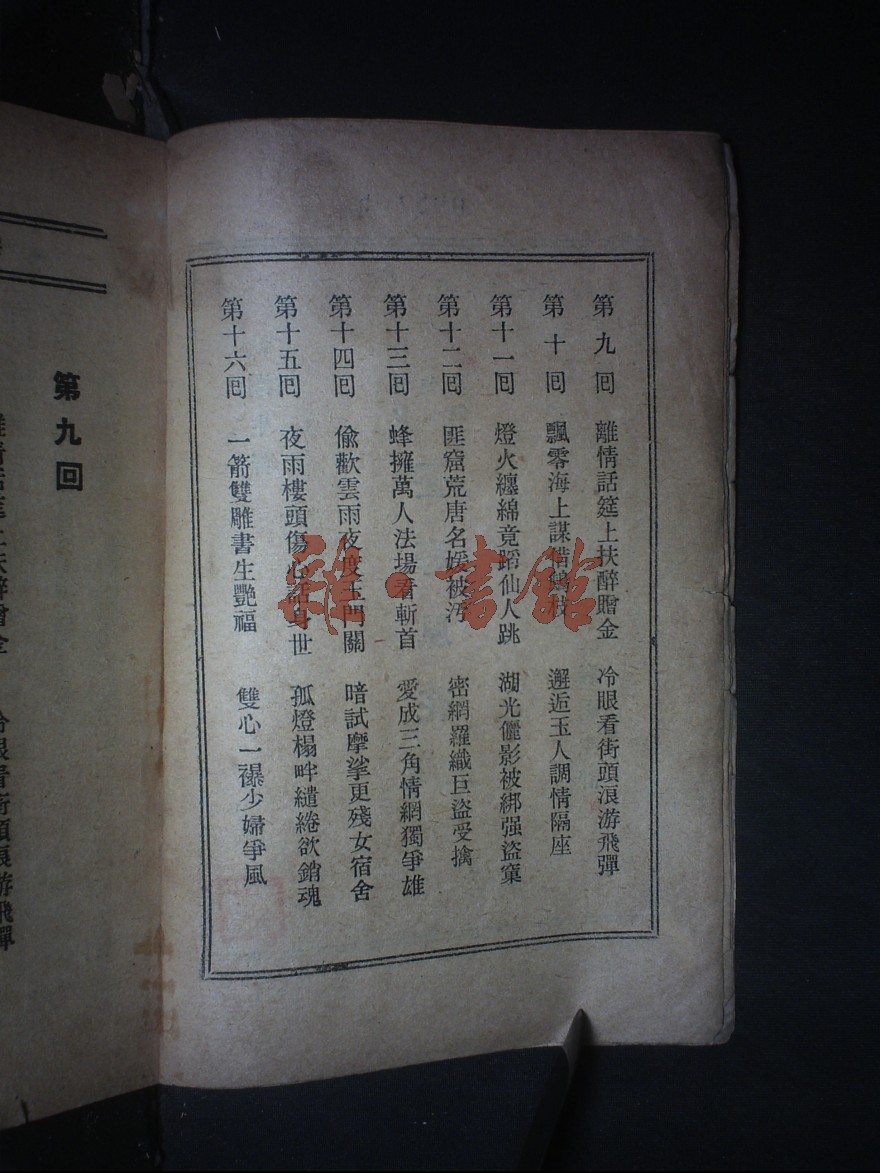 第九回 離情話筵上扶醉贈金 冷眼看街頭浪游飛彈
第十回 飄零海上謀借 邂逅玉人調情隔座
第十一回 燈火纏綿竟蹈仙人跳 湖光儷影被綁强盜窠
第十二回 匪窟荒唐名媛被汚 密網羅織巨盜受擒
第十三回 蜂擁萬人法場看斬首 愛成三角情網獨爭雄
第十四回 偸歡雲雨夜度玉門關 暗試摩挲更殘女宿舍
第十五回 夜雨樓頭傷心話身世 孤燈榻畔繾綣欲銷魂
第十六回 一箭雙雕書生艷福 雙心一襪少婦爭風
第九回
雜·書館